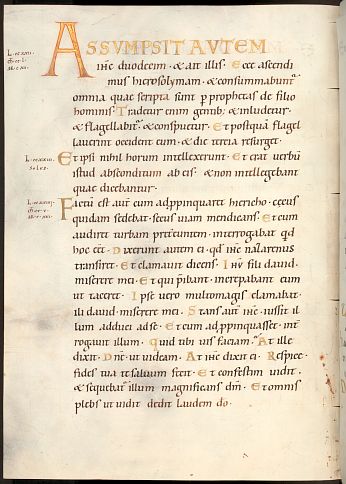 ASSUMPSIT AUTEM
ihc duodecim · & ait illis · Ecce ascendi
mus hierosolymam · & consummabunt
omnia quae scripta sunt p prophetas de filio
hominis · Tradetur enim gentib; & inludetur ·
& flagellabit · & conspuetur · Et postquā flagel
lauerint occident eum · & die tertia resurget ·
Et ipsi nihil horum intellexerunt · Et erat uerbū
istud absconditum ab eis · & non intellegebant
quae dicebantur ·
Factū est aut cum adppinquaret hiericho · cecus
quidam sedebat · secus uiam mendicans · Et cum
audiret turbam pretereuntem · interrogabat qd
hoc eet · Dixerunt autem ei · qd ihc nazarenus
transiret · Et clamauit dicens · Ihu fili dauid ·
miserere mei · Et qui pibant · increpabant eum
ut taceret · Ipse uero multo magis clamabat ·
fili dauid · miserere mei · Stans aut ihc · iussit il
lum adduci ad se · Et cum adppinquasset · int
rogauit illum · quid tibi uis faciam · At ille
dixit · Dne ut uideam · At ihc dixit ei · Respice
fides tua te saluum fecit · Et confestim uidit ·
& sequebat illum magnificans dm · Et omnis
plebs ut uidit dedit laudem do ·